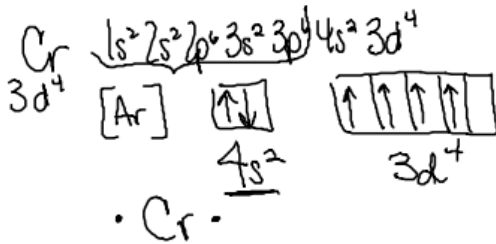 Cr 1s² 2s² 2p⁶ 3s² 3p⁶ 4s² 3d⁴
3d⁴
[Ar] ↑↓ ↑ ↑ ↑ ↑
4s² 3d⁴
· Cr ·